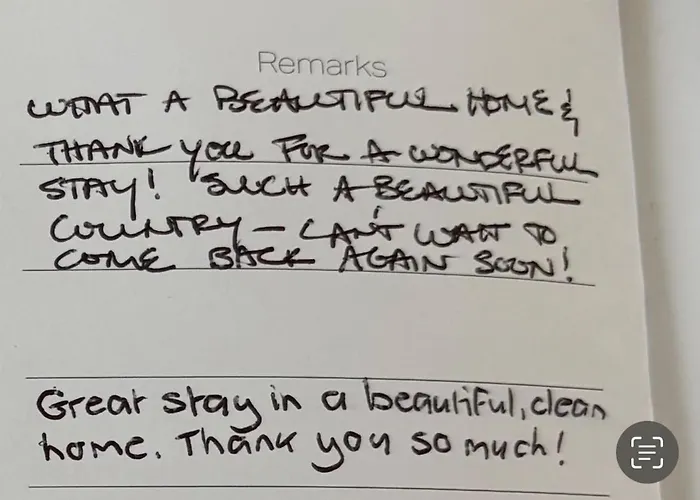 Remarks
WHAT A BEAUTIFUL HOME &
THANK YOU FOR A WONDERFUL
STAY! SUCH A BEAUTIFUL
COUNTRY - CAN'T WAIT TO
COME BACK AGAIN SOON!
Great stay in a beautiful, clean
home. Thank you so much!